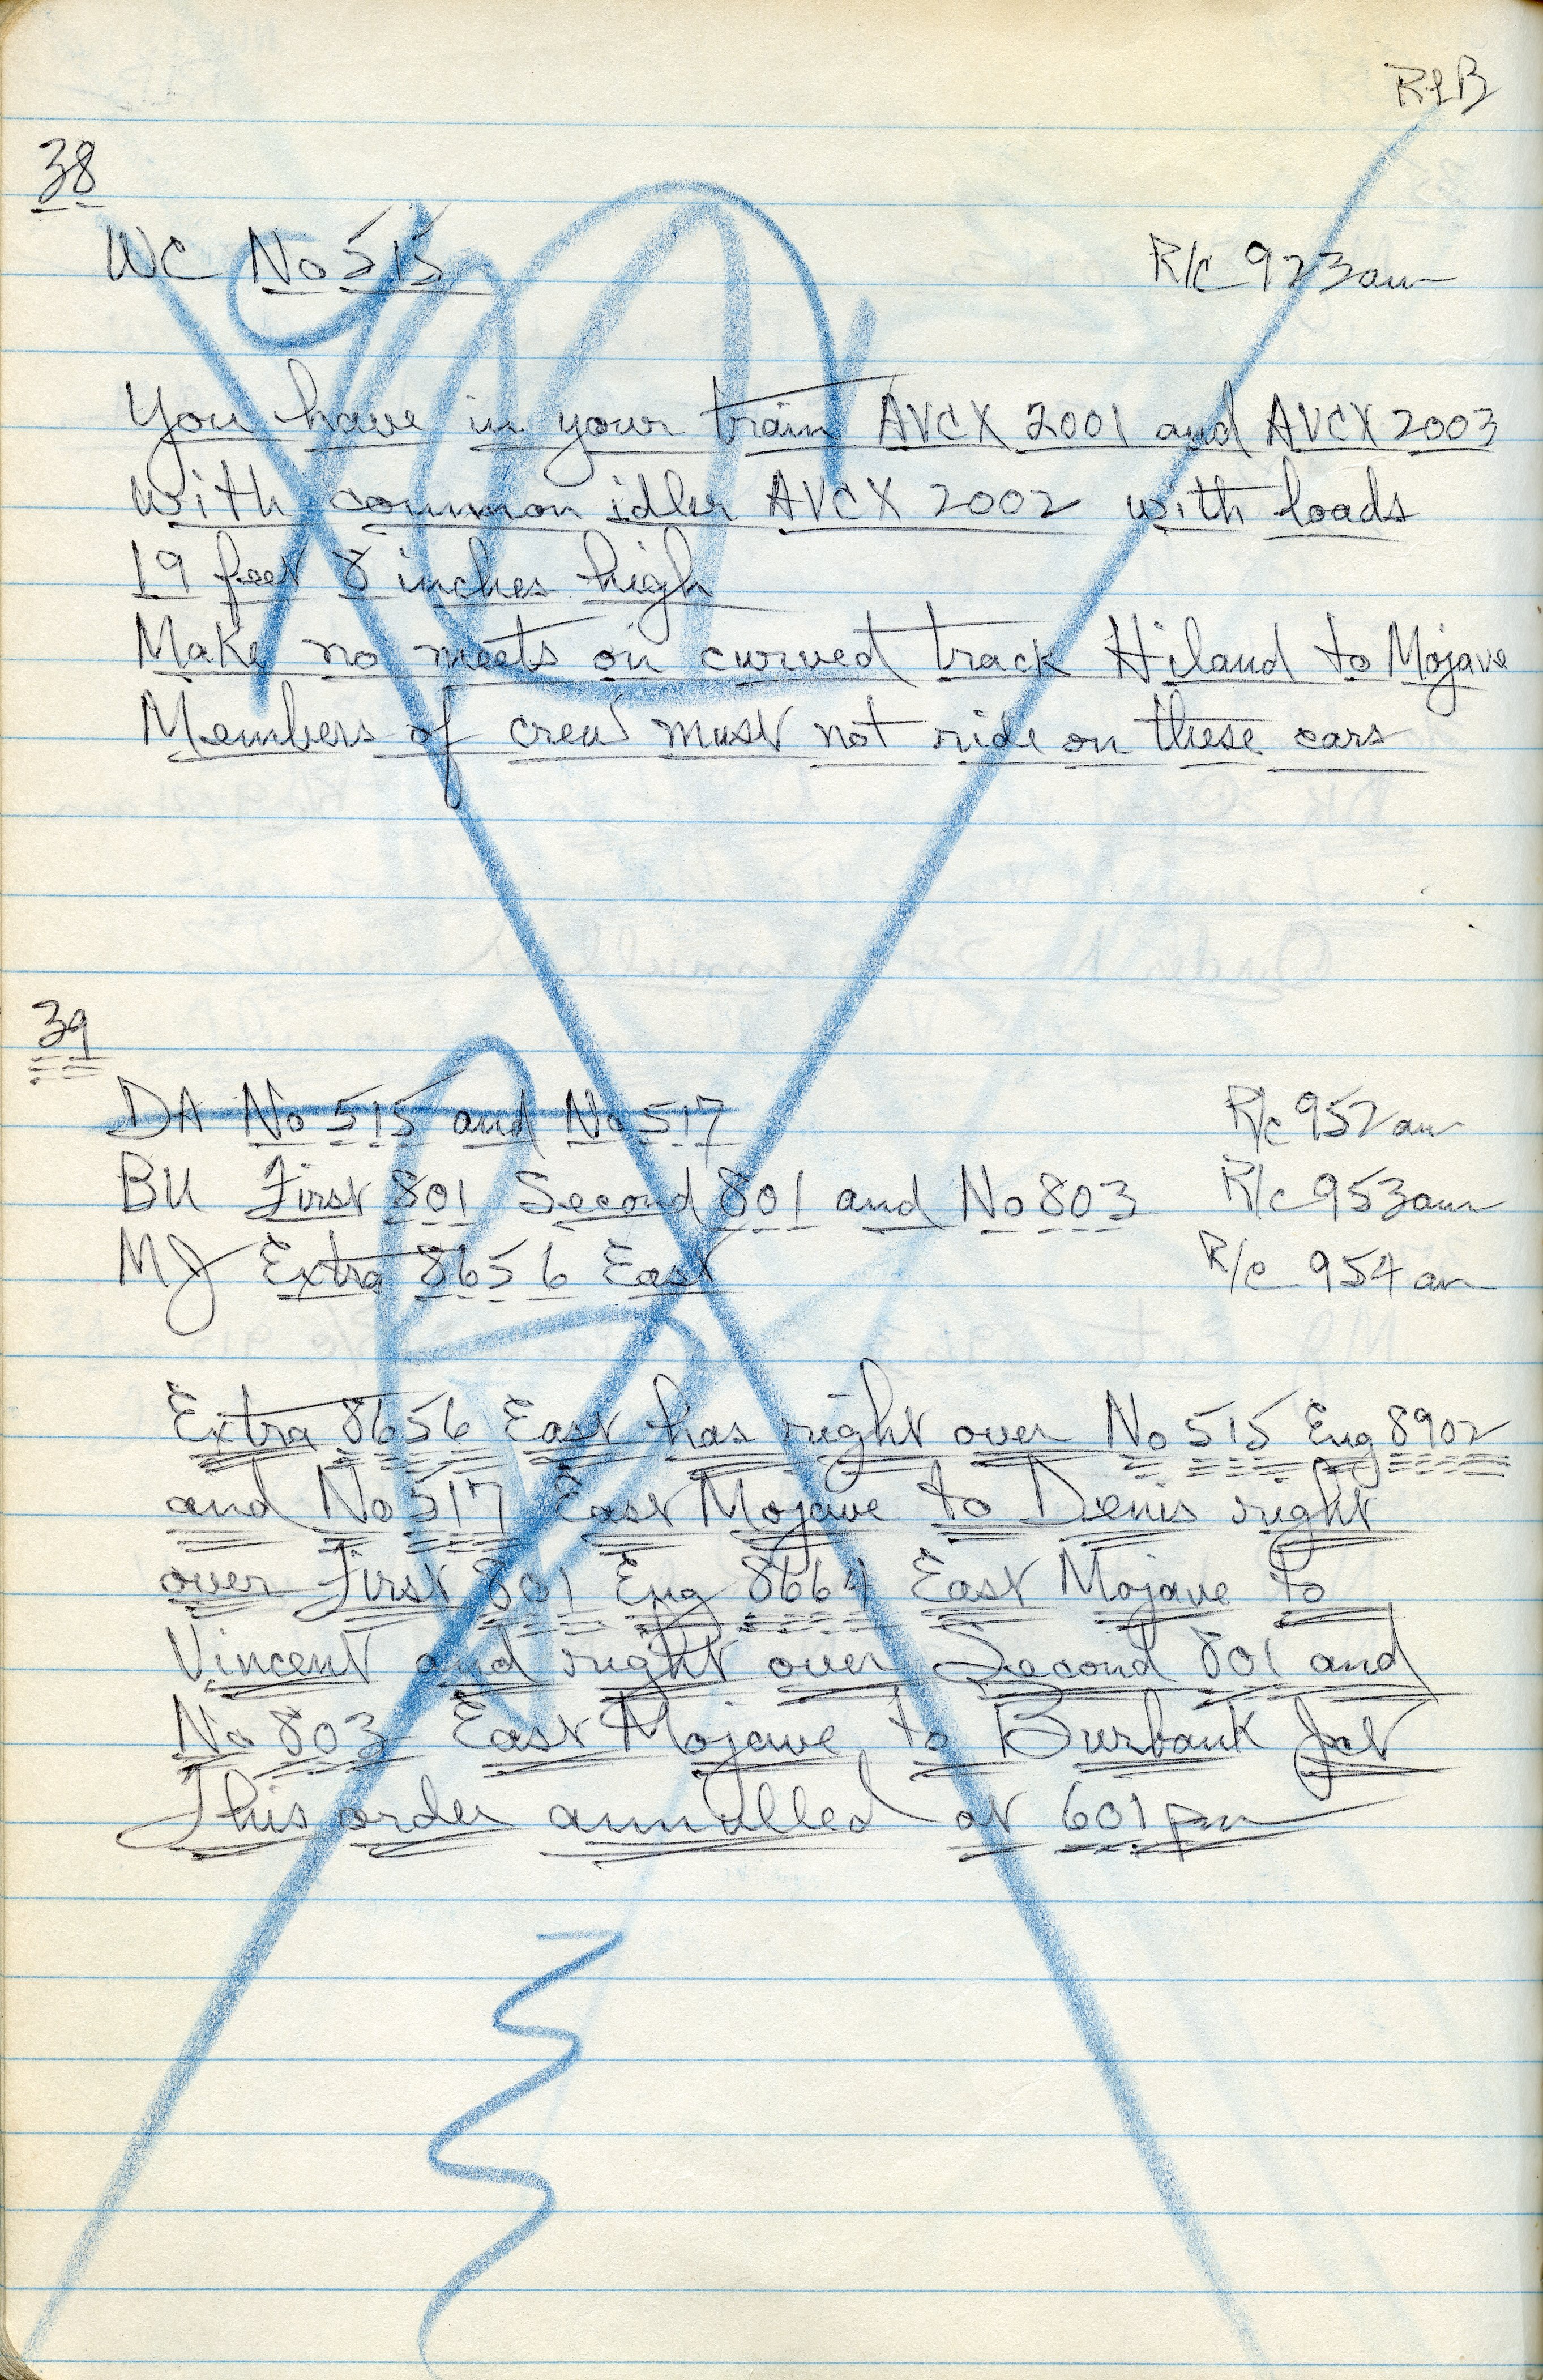 RLB
38
WC No 515 R/c 923am
You have in your train AVCX 2001 and AVCX 2003
with common idler AVCX 2002 with loads
19 feet 8 inches high
Make no meets on curved track Hiland to Mojave
Members of crew must not ride on these cars
39
DA No 515 and No 517 R/c 952am
BU First 801 Second 801 and No 803 R/c 953am
MJ Extra 8656 East R/c 954am
Extra 8656 East has right over No 515 Eng 8902
and No 517 East Mojave to Denis right
over First 801 Eng 8664 East Mojave to
Vincent and right over Second 801 and
No 803 East Mojave to Burbank Jct
This order annulled at 601pm